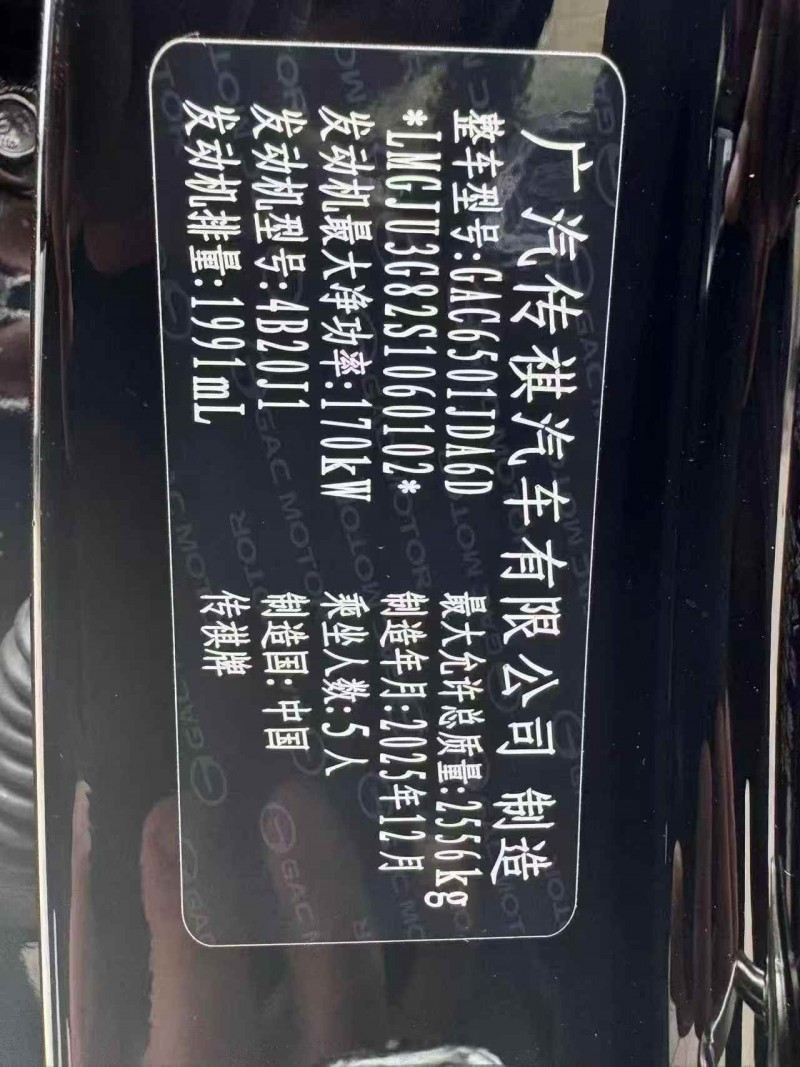 广汽传祺汽车有限公司 制造
整车型号:GAC6501JDA6D 最大允许总质量:2556kg
*LMGJU3G82S1060102* 制造年月:2025年12月
发动机最大净功率:170kW 乘坐人数:5人
发动机型号:4B20J1 制造国:中国
发动机排量:1991mL 传祺牌
GAC MOTOR